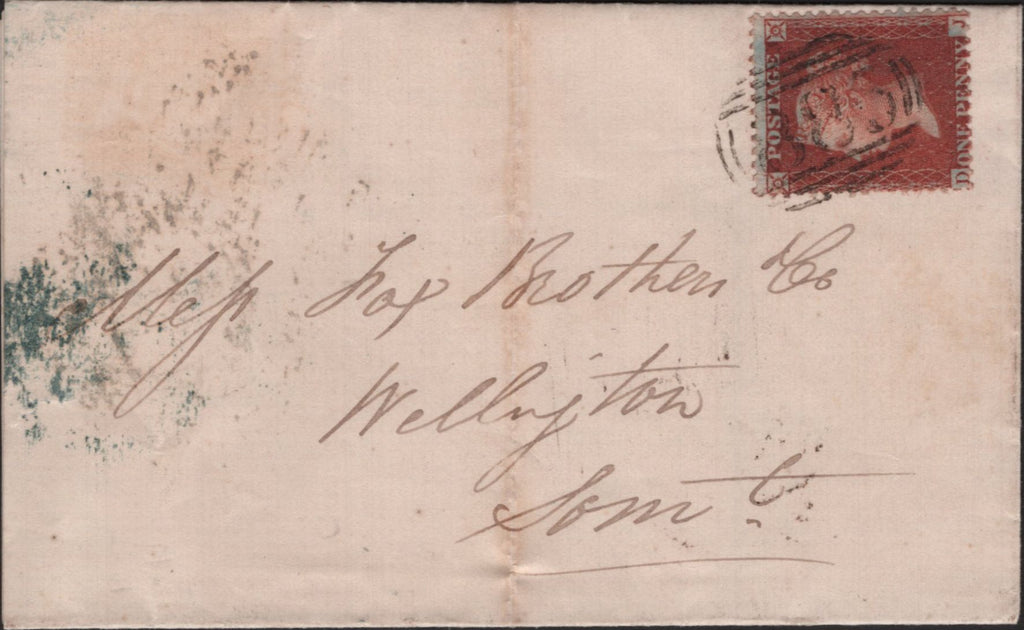 POSTAGE
ONE PENNY
J
D
Mess Fox Brothers & Co
Wellington
Somt